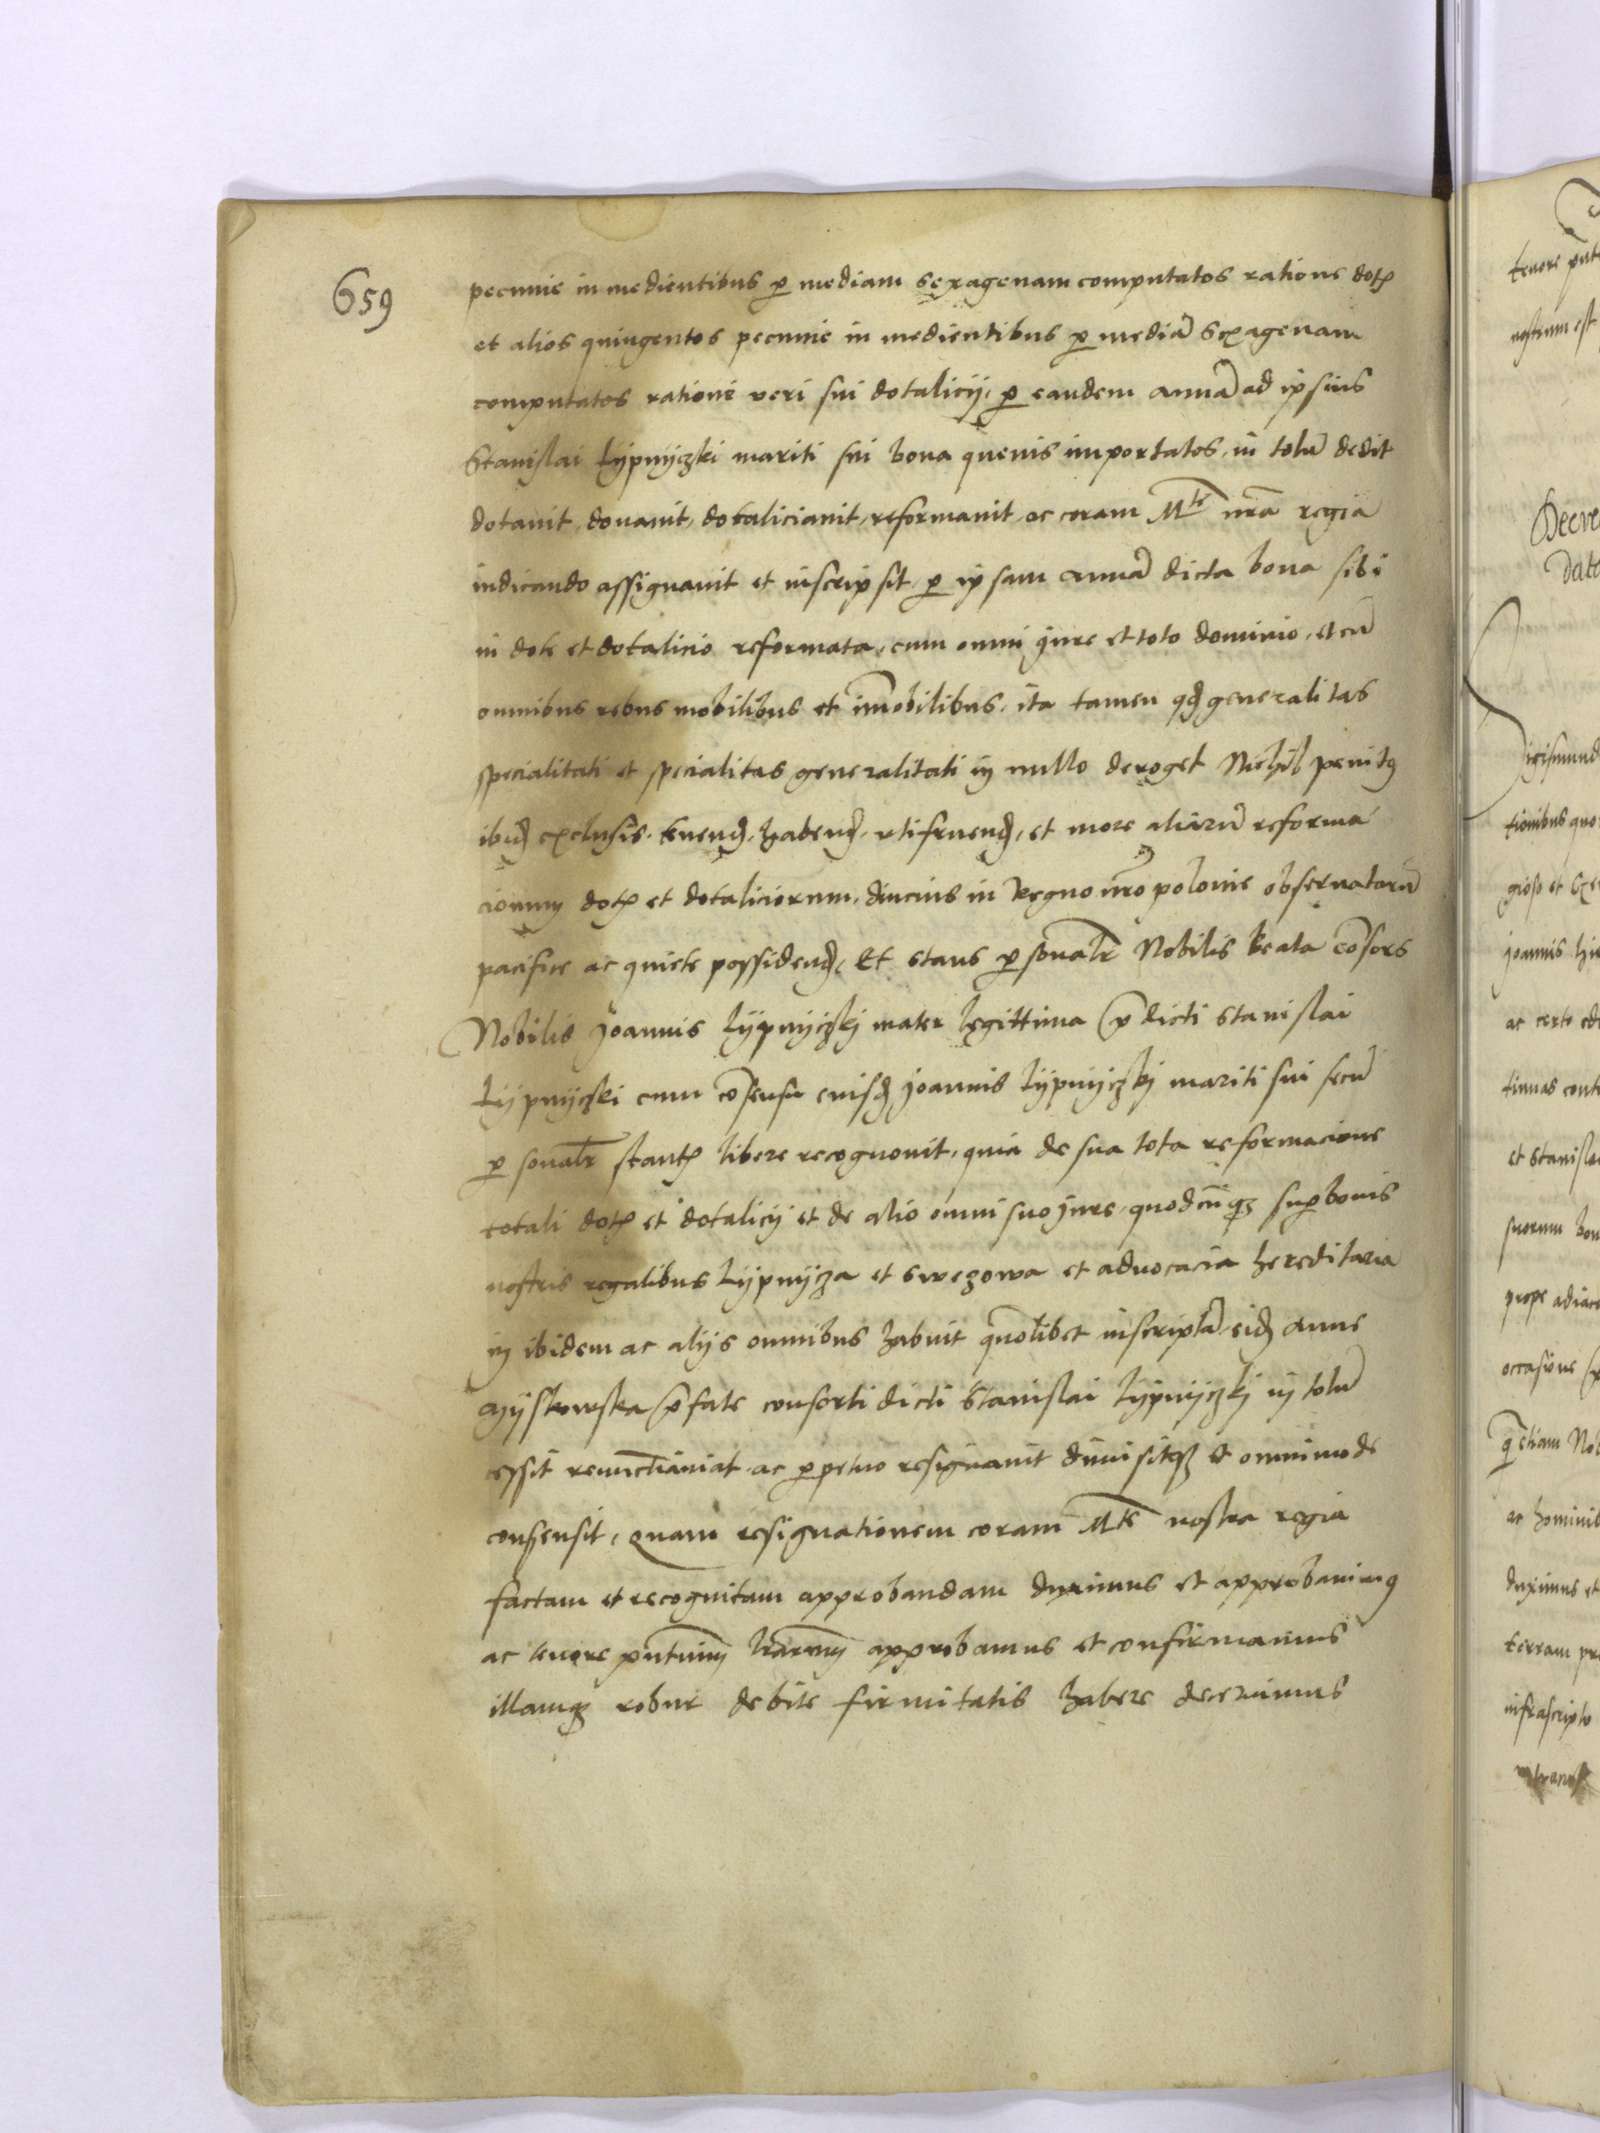 659
pecunie in medientibus p mediam sexagenam computatos ratione dot
et alios quingentos pecunie in medientibus p mediā sexagenam
computatos ratione veri sui dotalicij, p eandem annā ad ipsius
Stanislai Lypnyczki mariti sui bona quevis importatos, in totū dedit
dotavit, donavit, dotaliciavit, reformavit, ac coram Mte nrā regia
indicando assignavit et inscripsit, p ipsam annā dicta bona sibi
in dote et dotalicio reformata, cum omni jure et toto dominio, et cū
omnibus rebus mobilibus et īmobilibus, ita tamen qd generalitas
specialitati et specialitas generalitati in nullo deroget Nichil penitus
ibid exclusis, tenend, habend, utifruend, et more aliarū reforma
cionum dot et dotaliciorum, diucius in Regno nrō polonie observatarū
pacifice ac quiete possidend, Et stans psonalr Nobilis Beata cōsors
Nobilis Joannis Lypnyczkj mater legittima pdicti Stanislai
Lypnyczki cum cōsensu eiusd Joannis Lypnyczkj mariti sui secū
psonalr stant libere recognovit, quia de sua tota reformacione
totali dot et dotalicij et de alio omni suo jure, quodcūq sup bonis
nostris regalibus Lypnycza et swezowa et advocacia hereditaria
in ibidem ac alijs omnibus habuit qmolibet inscriptā, eid Anne
Myskowska pfate consorti dicti Stanislai Lypnyczkj in totū
cessit renuncciavit ac ppetuo resignavit dimisitq et omnimode
consensit, Quam resignationem coram Mte nostra regia
factam et recognitam approbandam duximus et approbavimus
ac tenore pntium lrarum approbamus et confirmamus
illamq robur debite firmitatis habere decernimus
tenore pnt
nostrum est
Decre
Dato
igismund
tionibus quo
joannis hi
ac certo
tinuas cont
et Stanisla
suorum bon
prope adiace
occasione
q etiam Nob
ac hominib
duximus et
terram pr
infrascripto